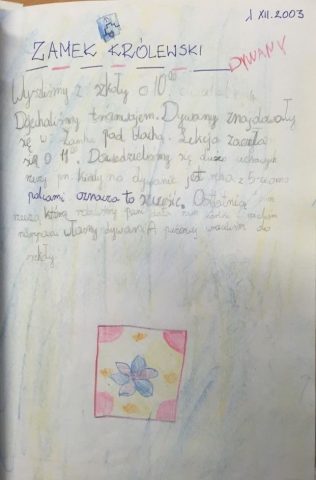 1 XII. 2003
ZAMEK KRÓLEWSKI
DYWANY
Wyszliśmy z szkoły o 10⁰⁰
Dojechaliśmy tramwajem. Dywany znajdowały
się w Zamku pod blachą. Lekcja zaczęła
się o 11⁰⁰. Dowiedzieliśmy się dużo ciekawych
rzeczy np. kiedy na dywanie jest
to szczęście. Ostatnią
rzeczą którą robiliśmy pani dała nam kartki i
własny dywan. A później wróciliśmy do
szkoły.